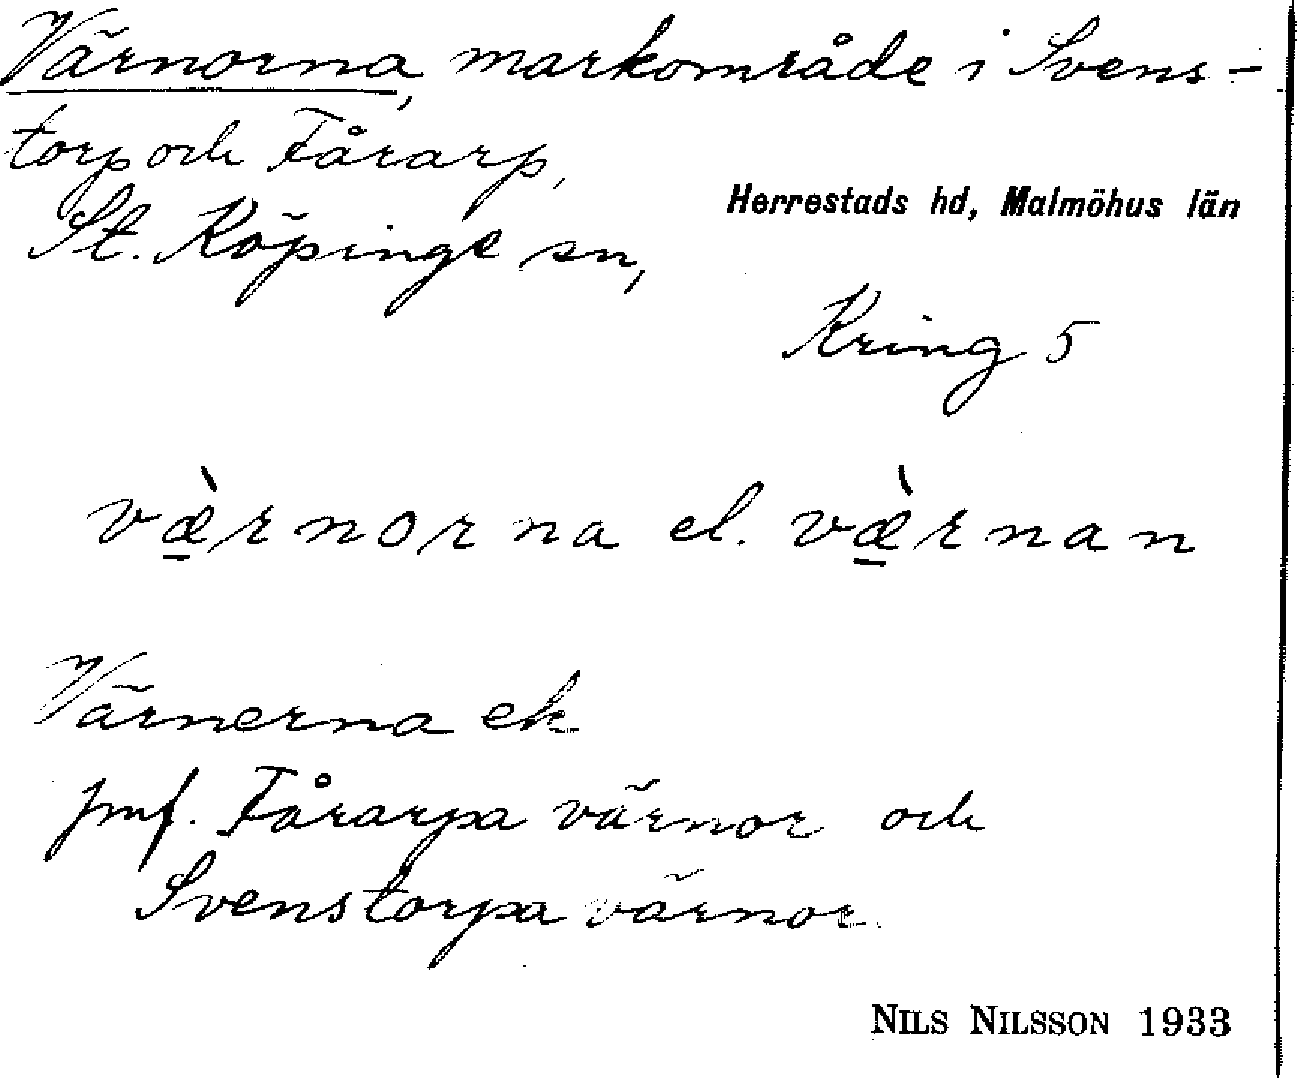 Värnorna, markområde i Svens-
torp och Fårarp,
Herrestads hd, Malmöhus län
St. Köpinge sn,
Kring 5
væ̱̀rnorna el. væ̱̀rnan
Värnerna ek
jmf. Fårarpa värnor och
Svenstorpa värnor.
NILS NILSSON 1933